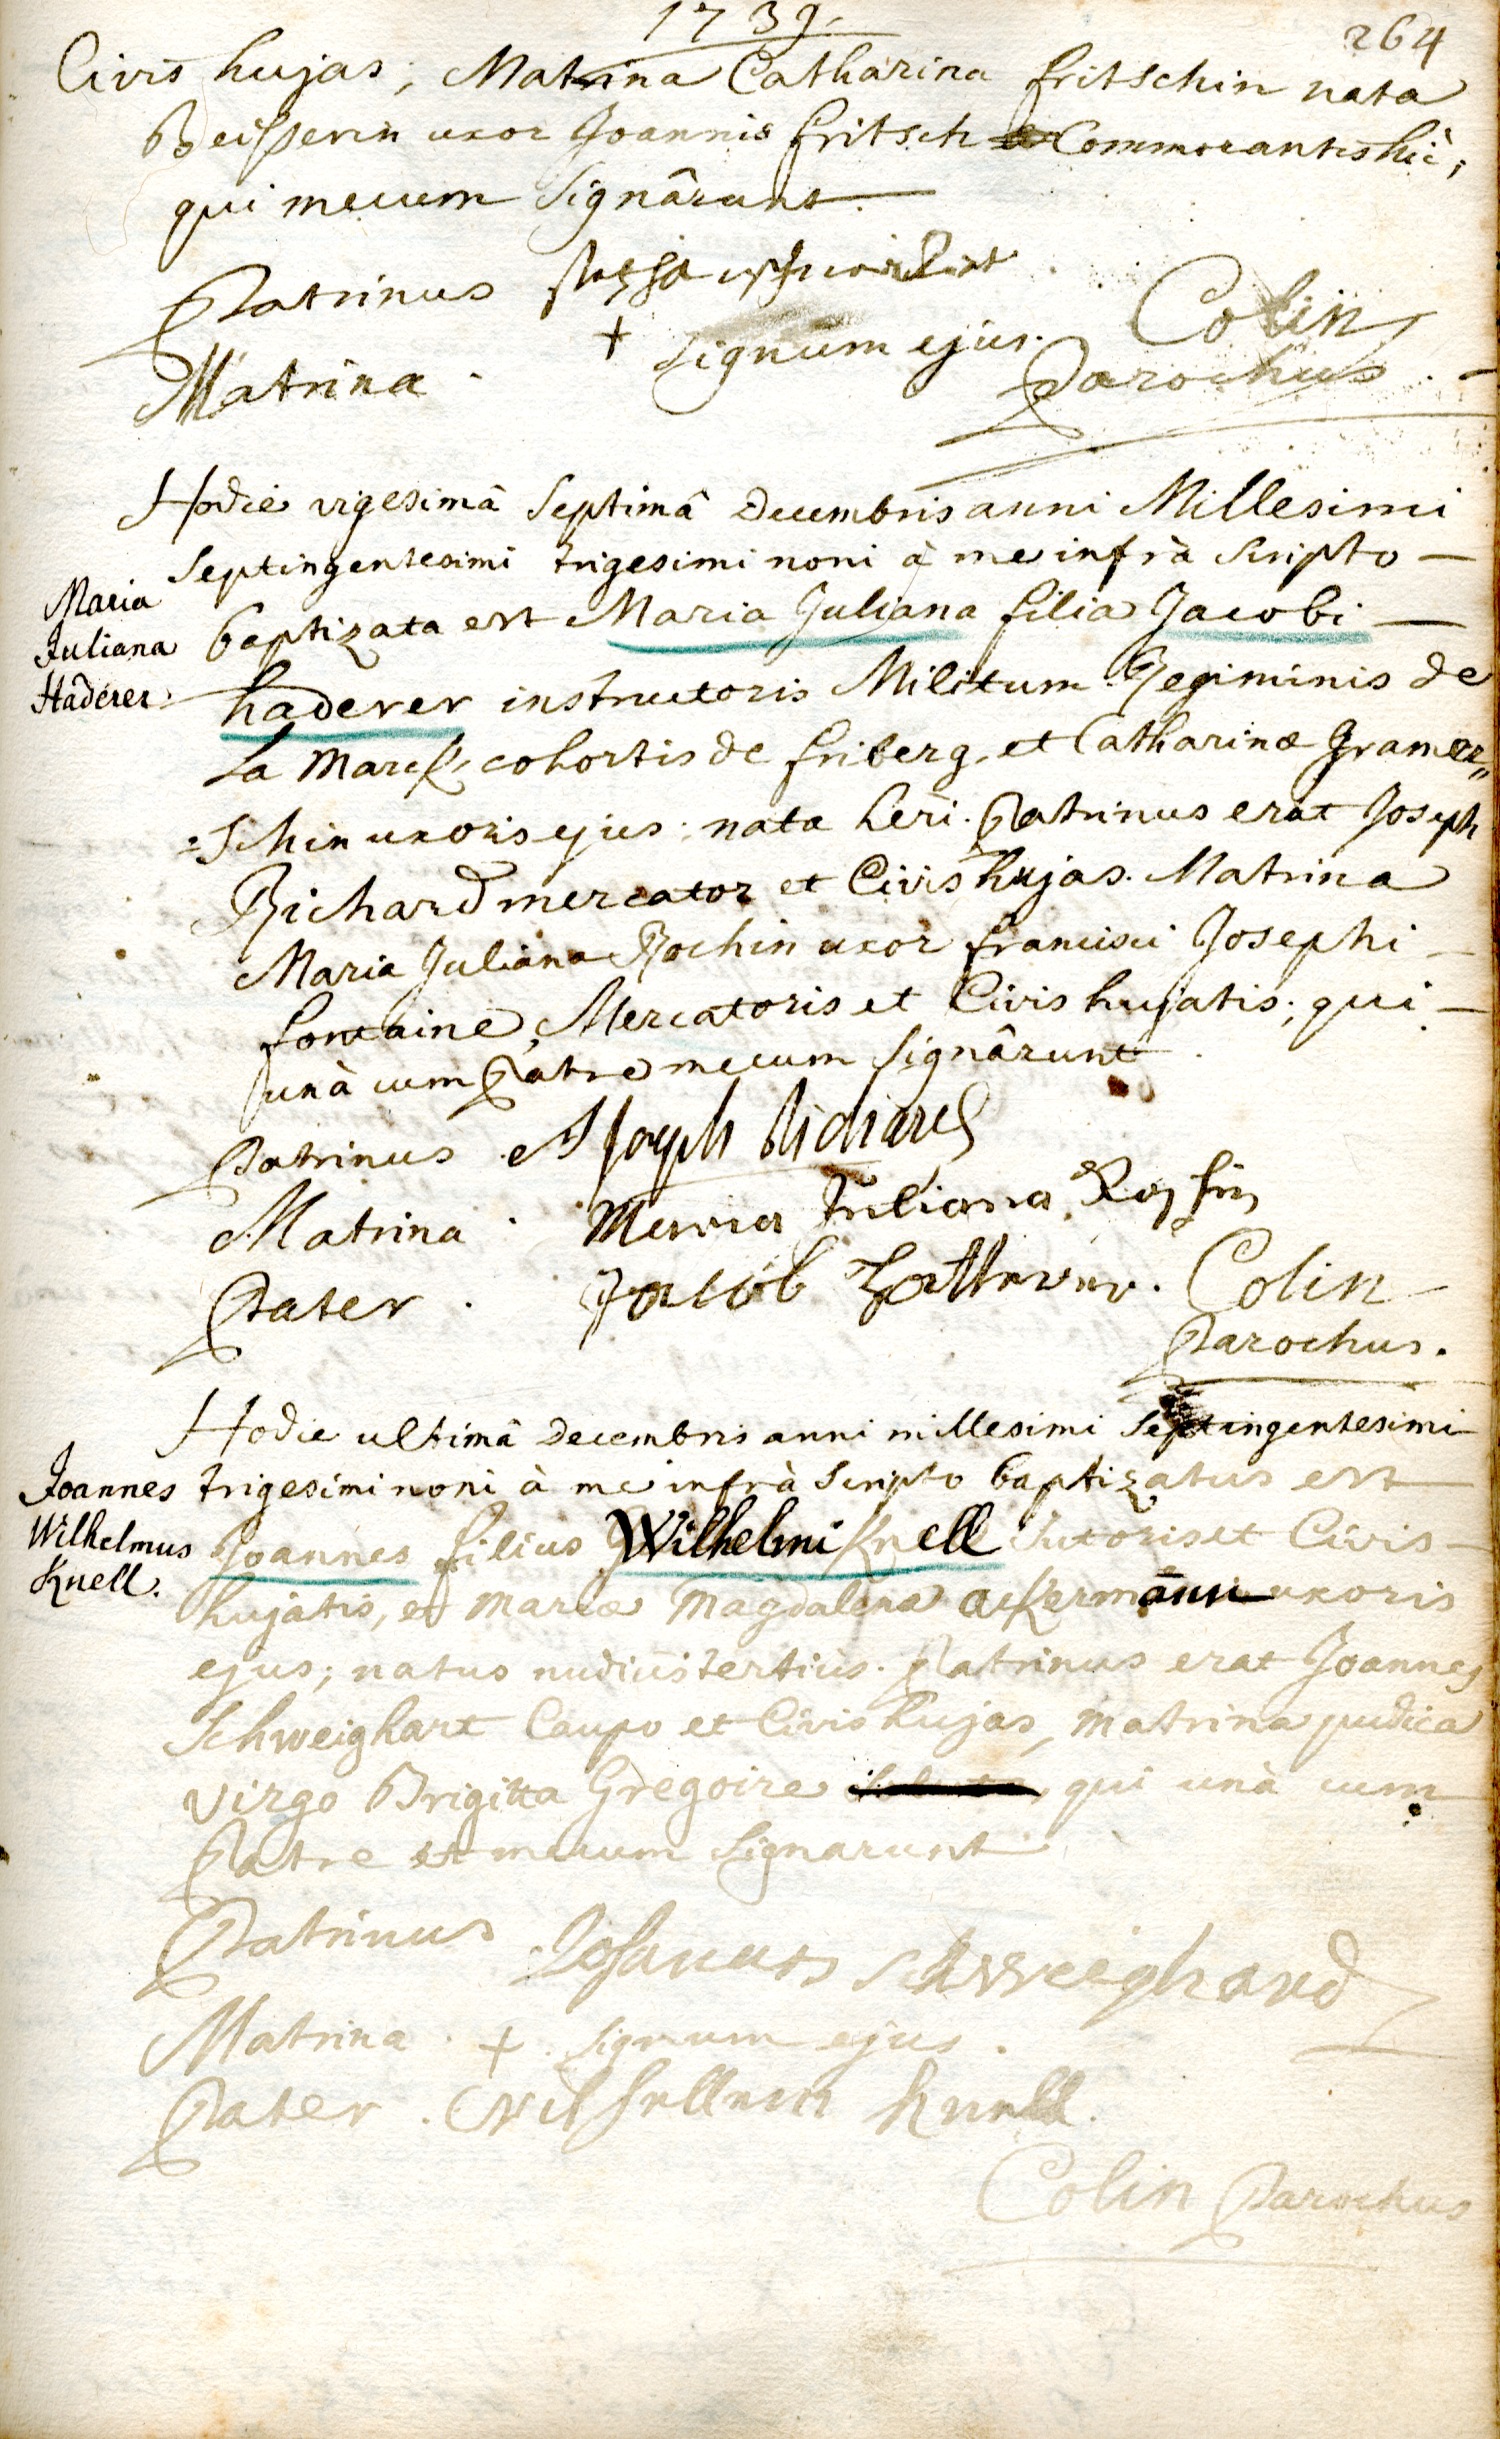 1739.
264
Civis hujas; Matrina Catharina fritschin nata
Beisserin uxor Joannis fritsch Commorantis hic;
qui mecum signârunt.
Patrinus
+ signum ejus. Colin
Matrina. Parochus.
Hodie vigesimâ Septimâ decembris anni Millesimi
Septingentesimi trigesimi noni à me infrà scripto —
Maria
Juliana
Haderer
baptizata est Maria Juliana filia Jacobi —
haderer instructoris Militum Regiminis de
La Marck, cohortis de friberg, et Catharinæ Gramer„
=schin uxoris ejus: nata heri. Patrinus erat Joseph
Richard mercator et Civis hujas. Matrina
Maria Juliana Rochin uxor francisci Josephi —
fontaine, Mercatoris et Civis hujatis; qui —
unà cum Patre mecum signârunt.
Patrinus Joseph Richard
Matrina. Maria Juliana
Pater. Jacob Colin
Parochus.
Hodie ultimâ decembris anni millesimi Septingentesimi
Joannes
Wilhelmus
Knell.
trigesimi noni à me infrà scripto baptizatus est
Joannes filius Wilhelmi Knell sutoris et Civis —
hujatis, et Mariæ Magdalena ackermānn uxoris
ejus; natus nudiustertius. Patrinus erat Joannes
Schweighart Caupo et Civis hujas, matrina pudica
virgo Brigitta Gregoire qui unà cum
Patre et mecum signarunt
Patrinus Johannes schweighard
Matrina. + signum ejus.
Pater. Wilhellm Knell.
Colin Parochus